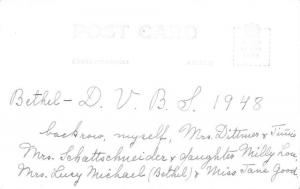 POST CARD
Bethel - D. V. B. S. 1948
back row, myself, Mrs. Dittmer &
Mrs. Schattschneider & daughter Milly Lou,
Mrs. Lucy Michael (Bethel) & Miss Jane Good